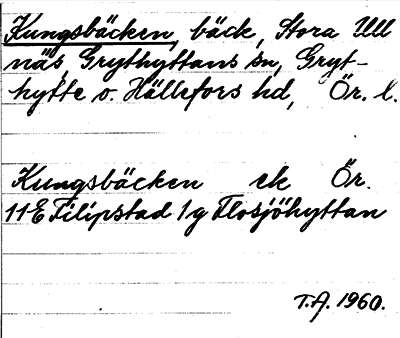 Kungsbäcken, bäck, Stora Ull
näs, Grythyttans sn, Gryt-
hytte o. Hällefors hd, Ör. l.
Kungsbäcken ek Ör.
11E Filipstad 1g Flosjöhyttan
T.A. 1960.